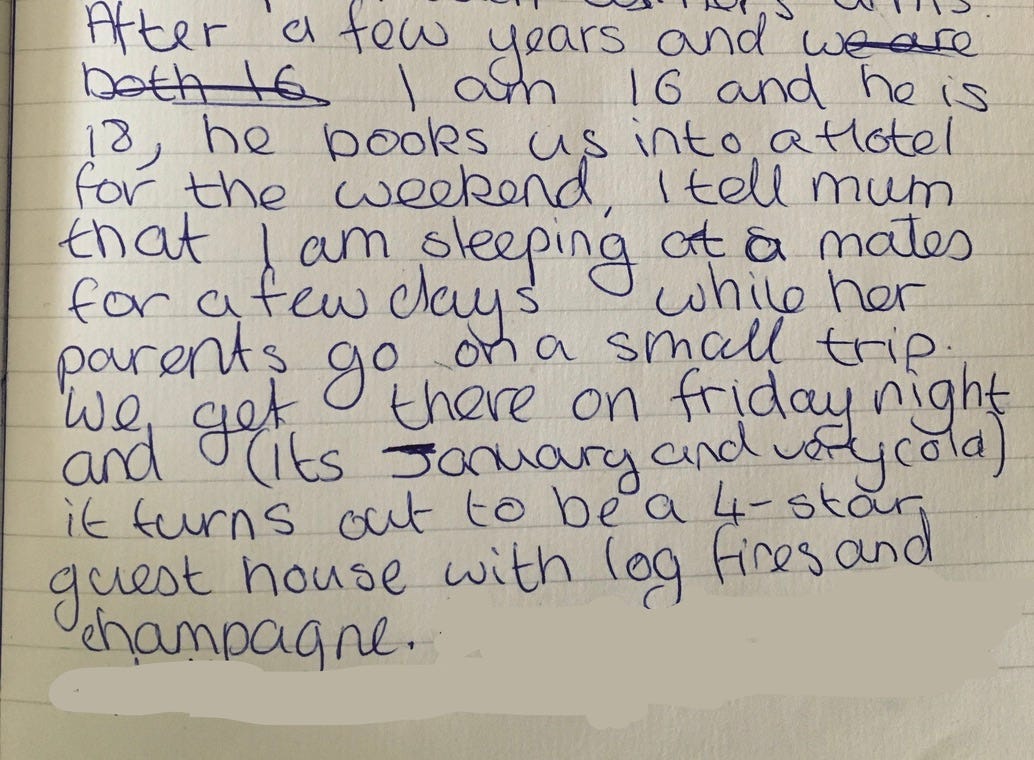 After a few years and we are
both 16 I am 16 and he is
18, he books us into a Hotel
for the weekend, I tell mum
that I am sleeping at a mates
for a few days while her
parents go on a small trip.
We get there on friday night
and (its January and very cold)
it turns out to be a 4-star
guest house with log fires and
champagne.